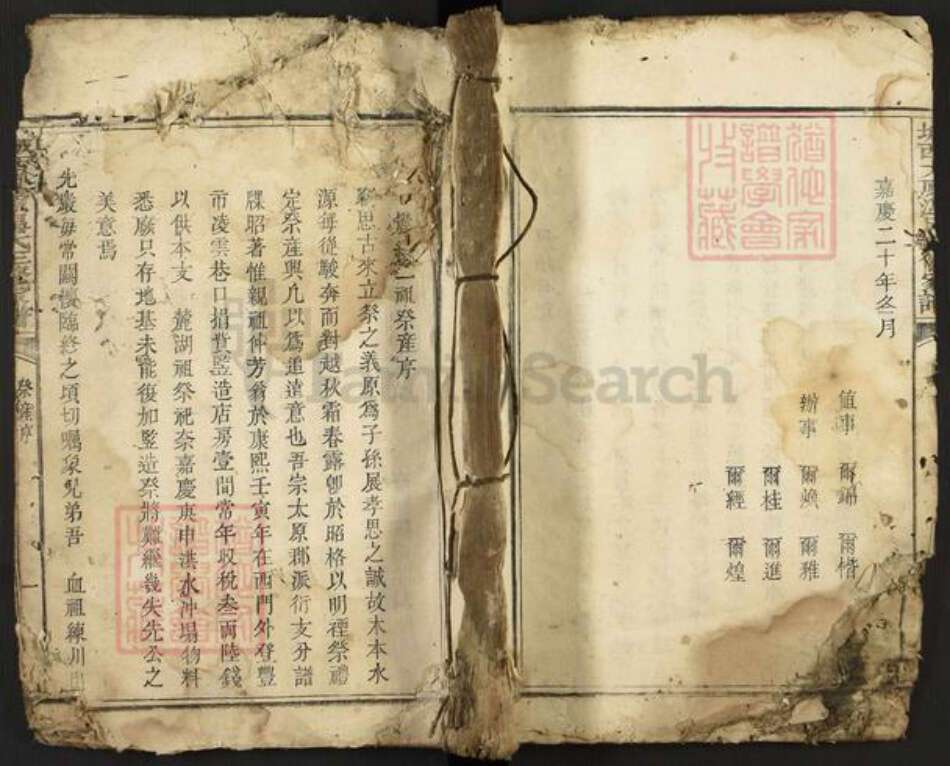 嘉慶二十年冬月
值事 爾錦 爾楷
辦事 爾煥 爾雅
爾桂 爾進
爾經 爾煌
祖祭產序
思古來立祭之義原為子孫展孝思之誠故木本水
源每從駿奔而對越秋霜春露卽於昭格以明禋祭禮
定祭產興凡以為追遠意也吾宗太原郡派衍支分譜
牒昭著惟親祖仲芳翁於康熙壬寅年在西門外登豐
市凌雲巷口捐貲竪造店房壹間常年收稅叁両陸錢
以供本支 麓湖祖祭祀奈嘉慶庚申洪水冲塌物料
悉廢只存地基未能復加竪造祭將難繼幾失先公之
美意焉
先嚴每常關懷臨終之頃切囑泉兄弟吾 血祖練川
祭產序
FamilySearch